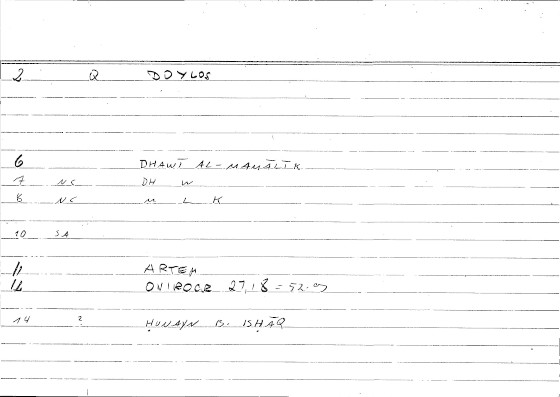 2 Q DOYLOS
6 DHAWĪ AL-MAMĀLĪK
7 NC DH W
8 NC M L K
10 SA
11 ARTEM
12 ONIROCR 27,18 = 52.
14 ? ḤUNAYN B. ISḤĀQ